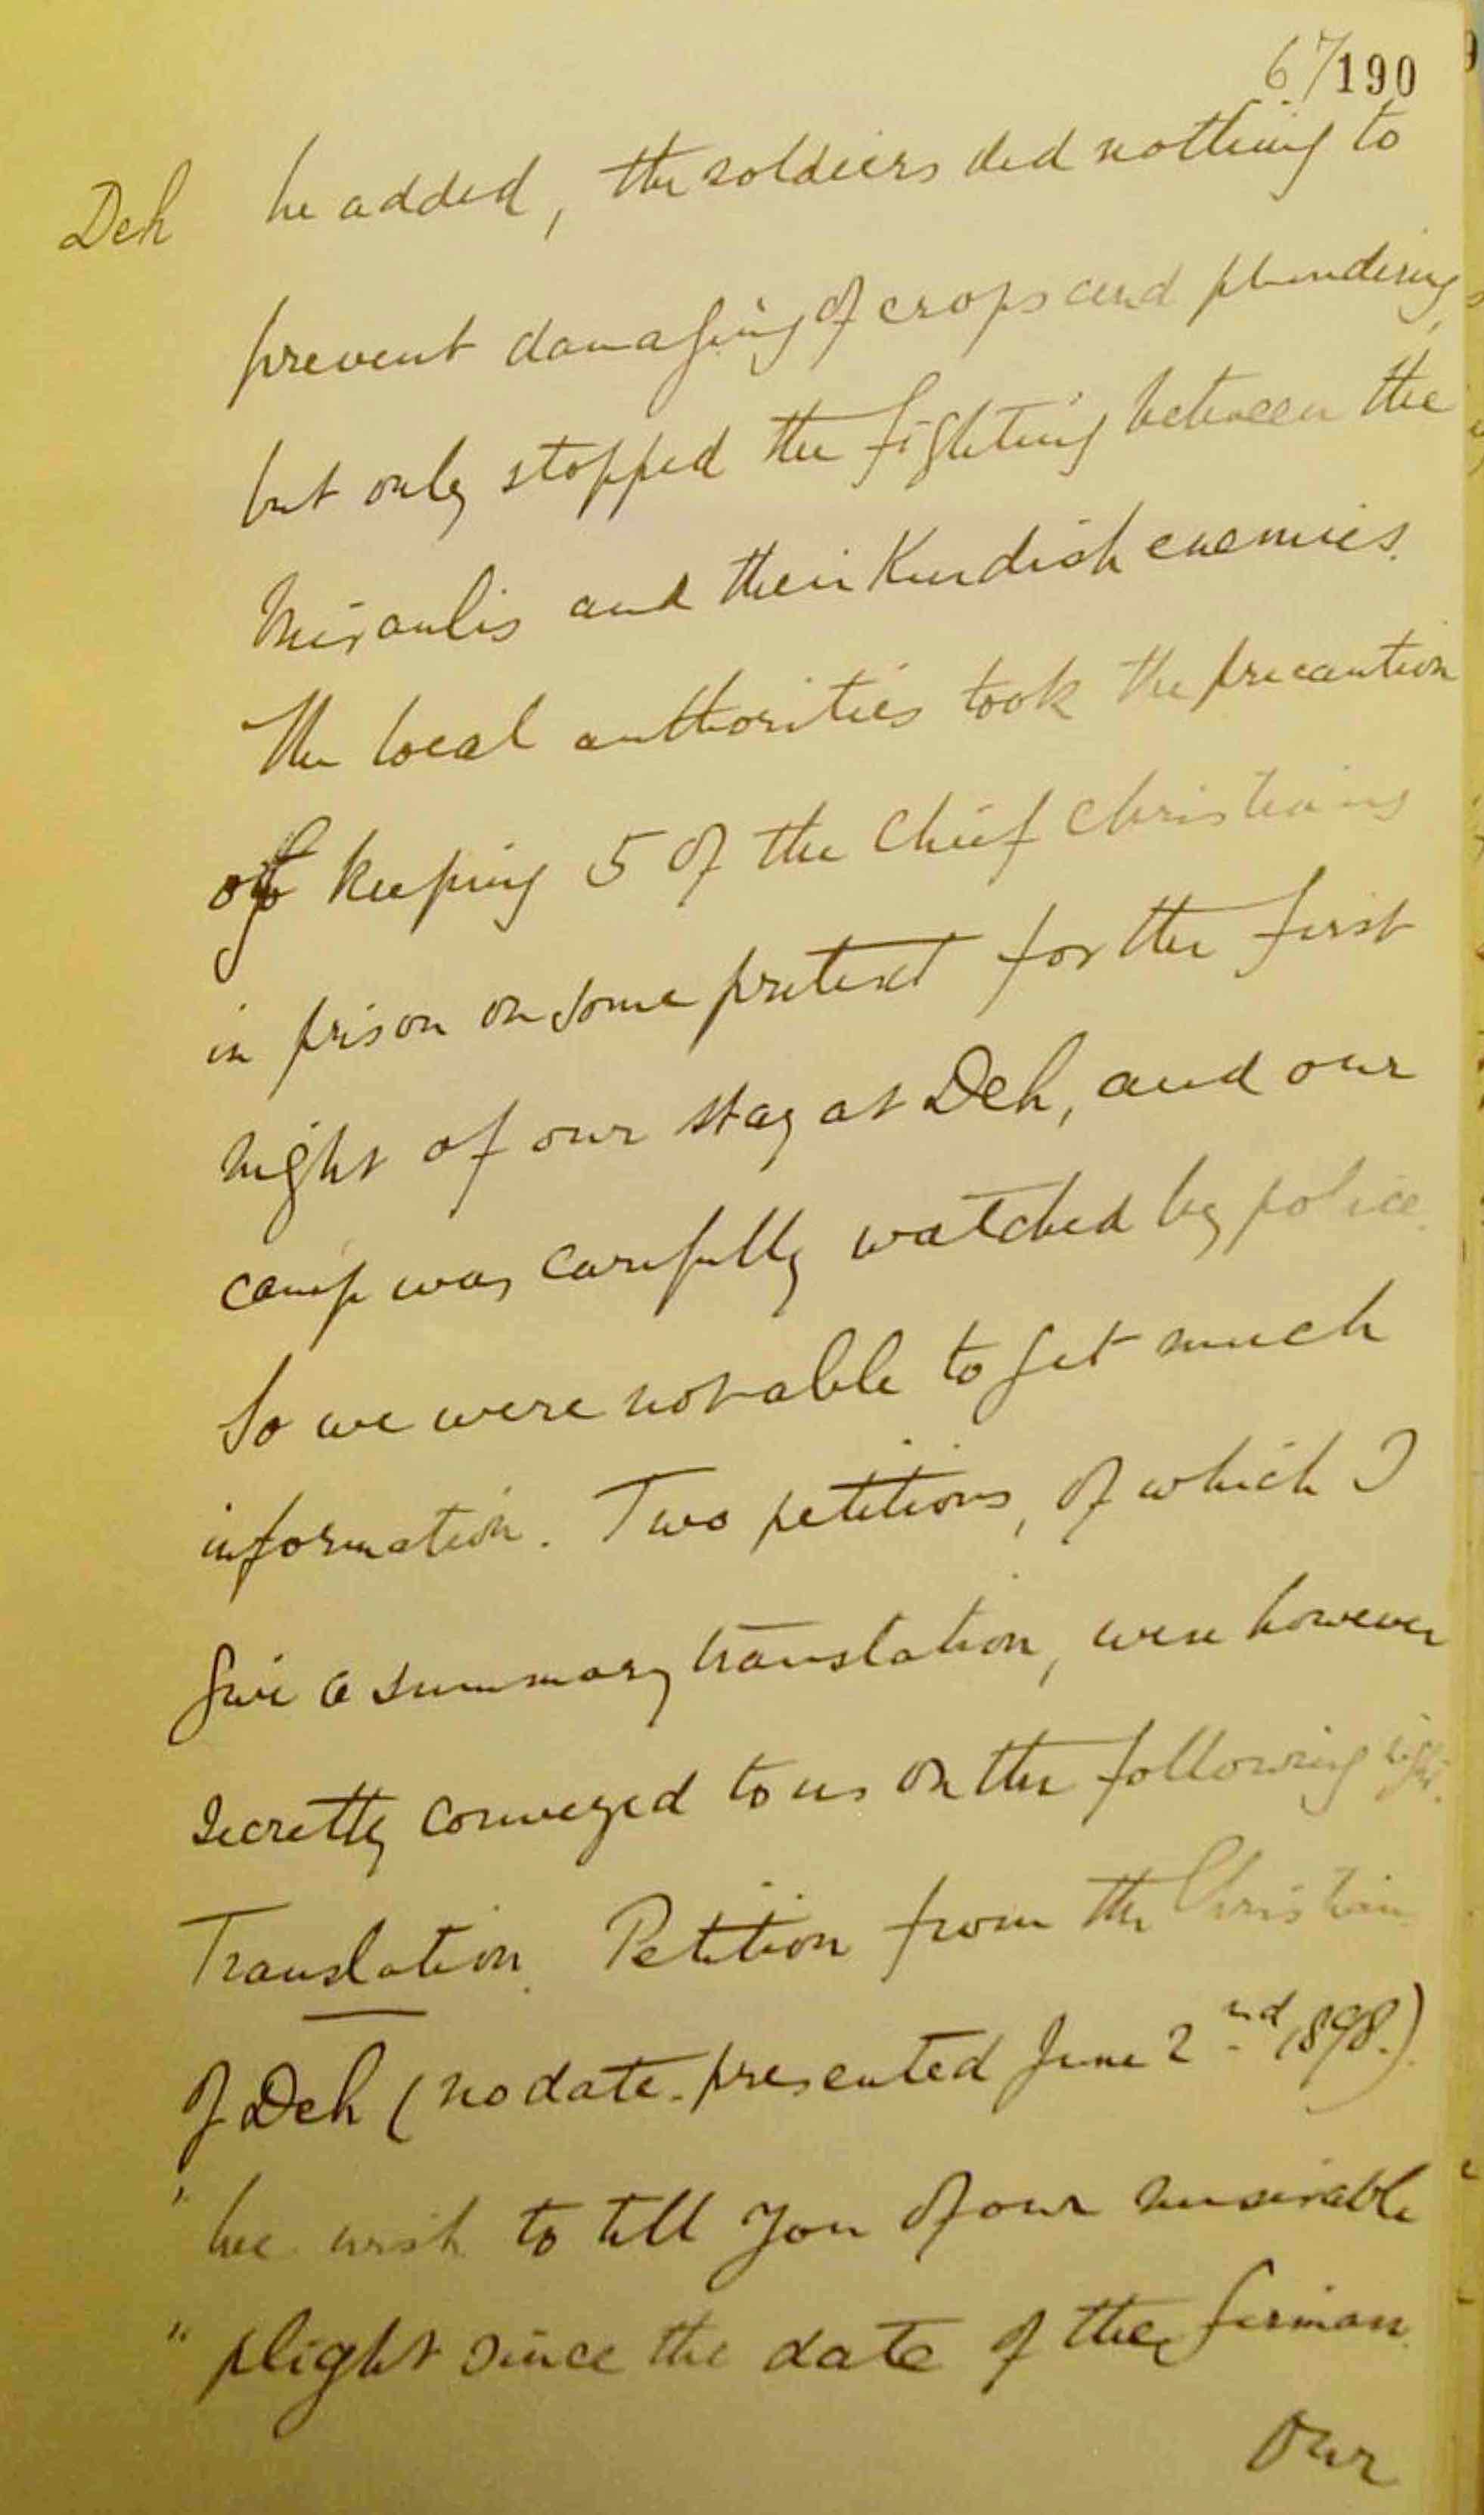 67/190
Deh he added, the soldiers did nothing to
prevent damaging of crops and plundering,
but only stopped the fighting between the
Miranlis and their Kurdish enemies.
The local authorities took the precaution
of keeping 5 of the Chief Christians
in prison on some pretext for the first
night of our stay at Deh, and our
camp was carefully watched by police.
So we were not able to get much
information. Two petitions, of which I
give a summary translation, were however
secretly conveyed to us on the following
Translation. Petition from the Christian
of Deh (no date. presented June 2nd 1898.)
" We wish to tell you of our miserable
" plight since the date of the firman.
Our